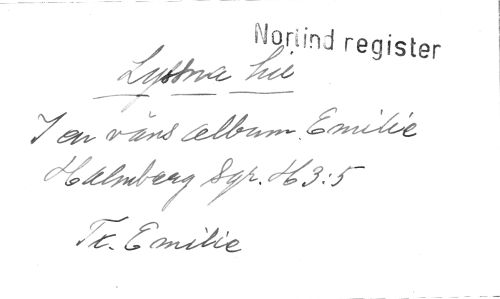 Norlind register
Lyssna hie
I en väns album. Emilie
Holmberg Sgr. H 3:5
Tr. Emilie